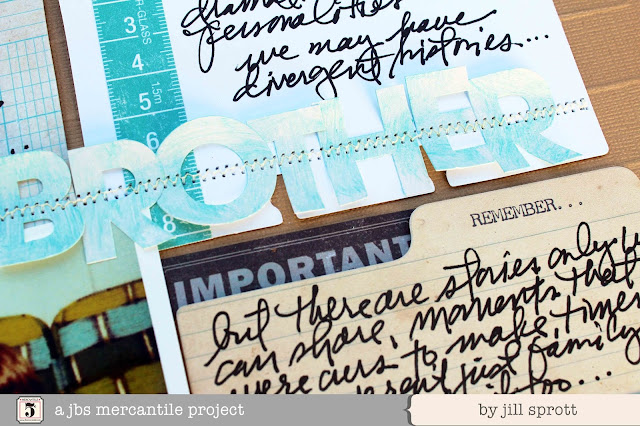 personalities
we may have
divergent histories...
R GLASS
3
4
15m
5
6
8
BROTHER
REMEMBER...
IMPORTANT
but there are stories only
can share, moments that
were ours to make, times
just family
too...
5
a jbs mercantile project
by jill sprott